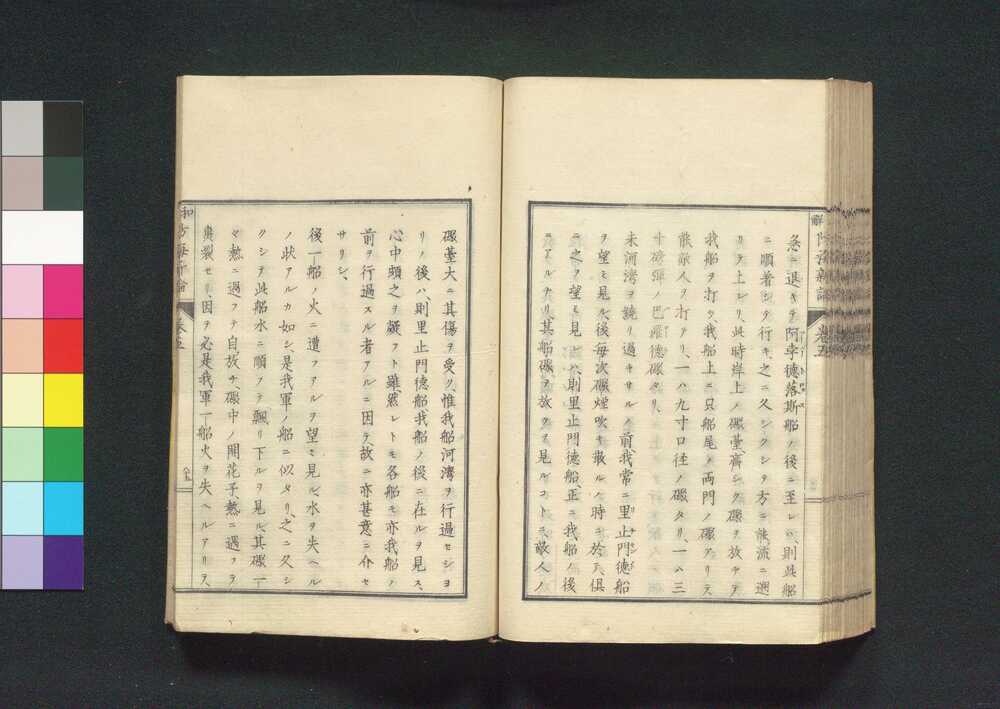 急ニ退キテ阿幸徳落斯船ノ後ニ至レハ、則此船
ニ順着シテ行キ、之ニ久シクシテ方ニ能流ニ遡
リテ上レリ、此時岸上ノ礮臺齊シク礮ヲ放チテ
我船ヲ打ツ、我船上ニ只船尾ノ両門ノ礮アリテ
能敵人ヲ打テリ、一ハ九寸口径ノ礮タリ、一ハ三
十磅弾ノ巴羅徳礮タリ、
未河湾ヲ繞リ過キサルノ前我常ニ里止門徳船
ヲ望ミ見ル、後毎次礮煙吹キ散ルノ時ニ於テ、倶
ニ之ヲ望ミ見レハ、則里止門徳船、正ニ我船ノ後
ニアルナリ、其船礮ヲ放ツヲ見ルコトニ、敵人ノ
礮臺大ニ其傷ヲ受ク、惟我船河湾ヲ行過セシヨ
リノ後ハ、則里止門徳船我船ノ後ニ在ルヲ見ス、
心中頗之ヲ疑フト雖然レトモ各船モ亦我船ノ
前ヲ行過スル者アルニ因テ、故ニ亦甚意ニ介セ
サリシ、
後一船ノ火ニ遭フアルヲ望ミ見ル、水ヲ失ヘル
ノ状アルカ如シ是我軍ノ船ニ似タリ、之ニ久シ
クシテ此船水ニ順フテ飄リ下ルヲ見ル、其礮一
々熱ニ遇フテ自放チ、礮中ノ開花子、熱ニ遇フテ
裂セリ、因テ必是我軍一船火ヲ失ヘルアリテ、